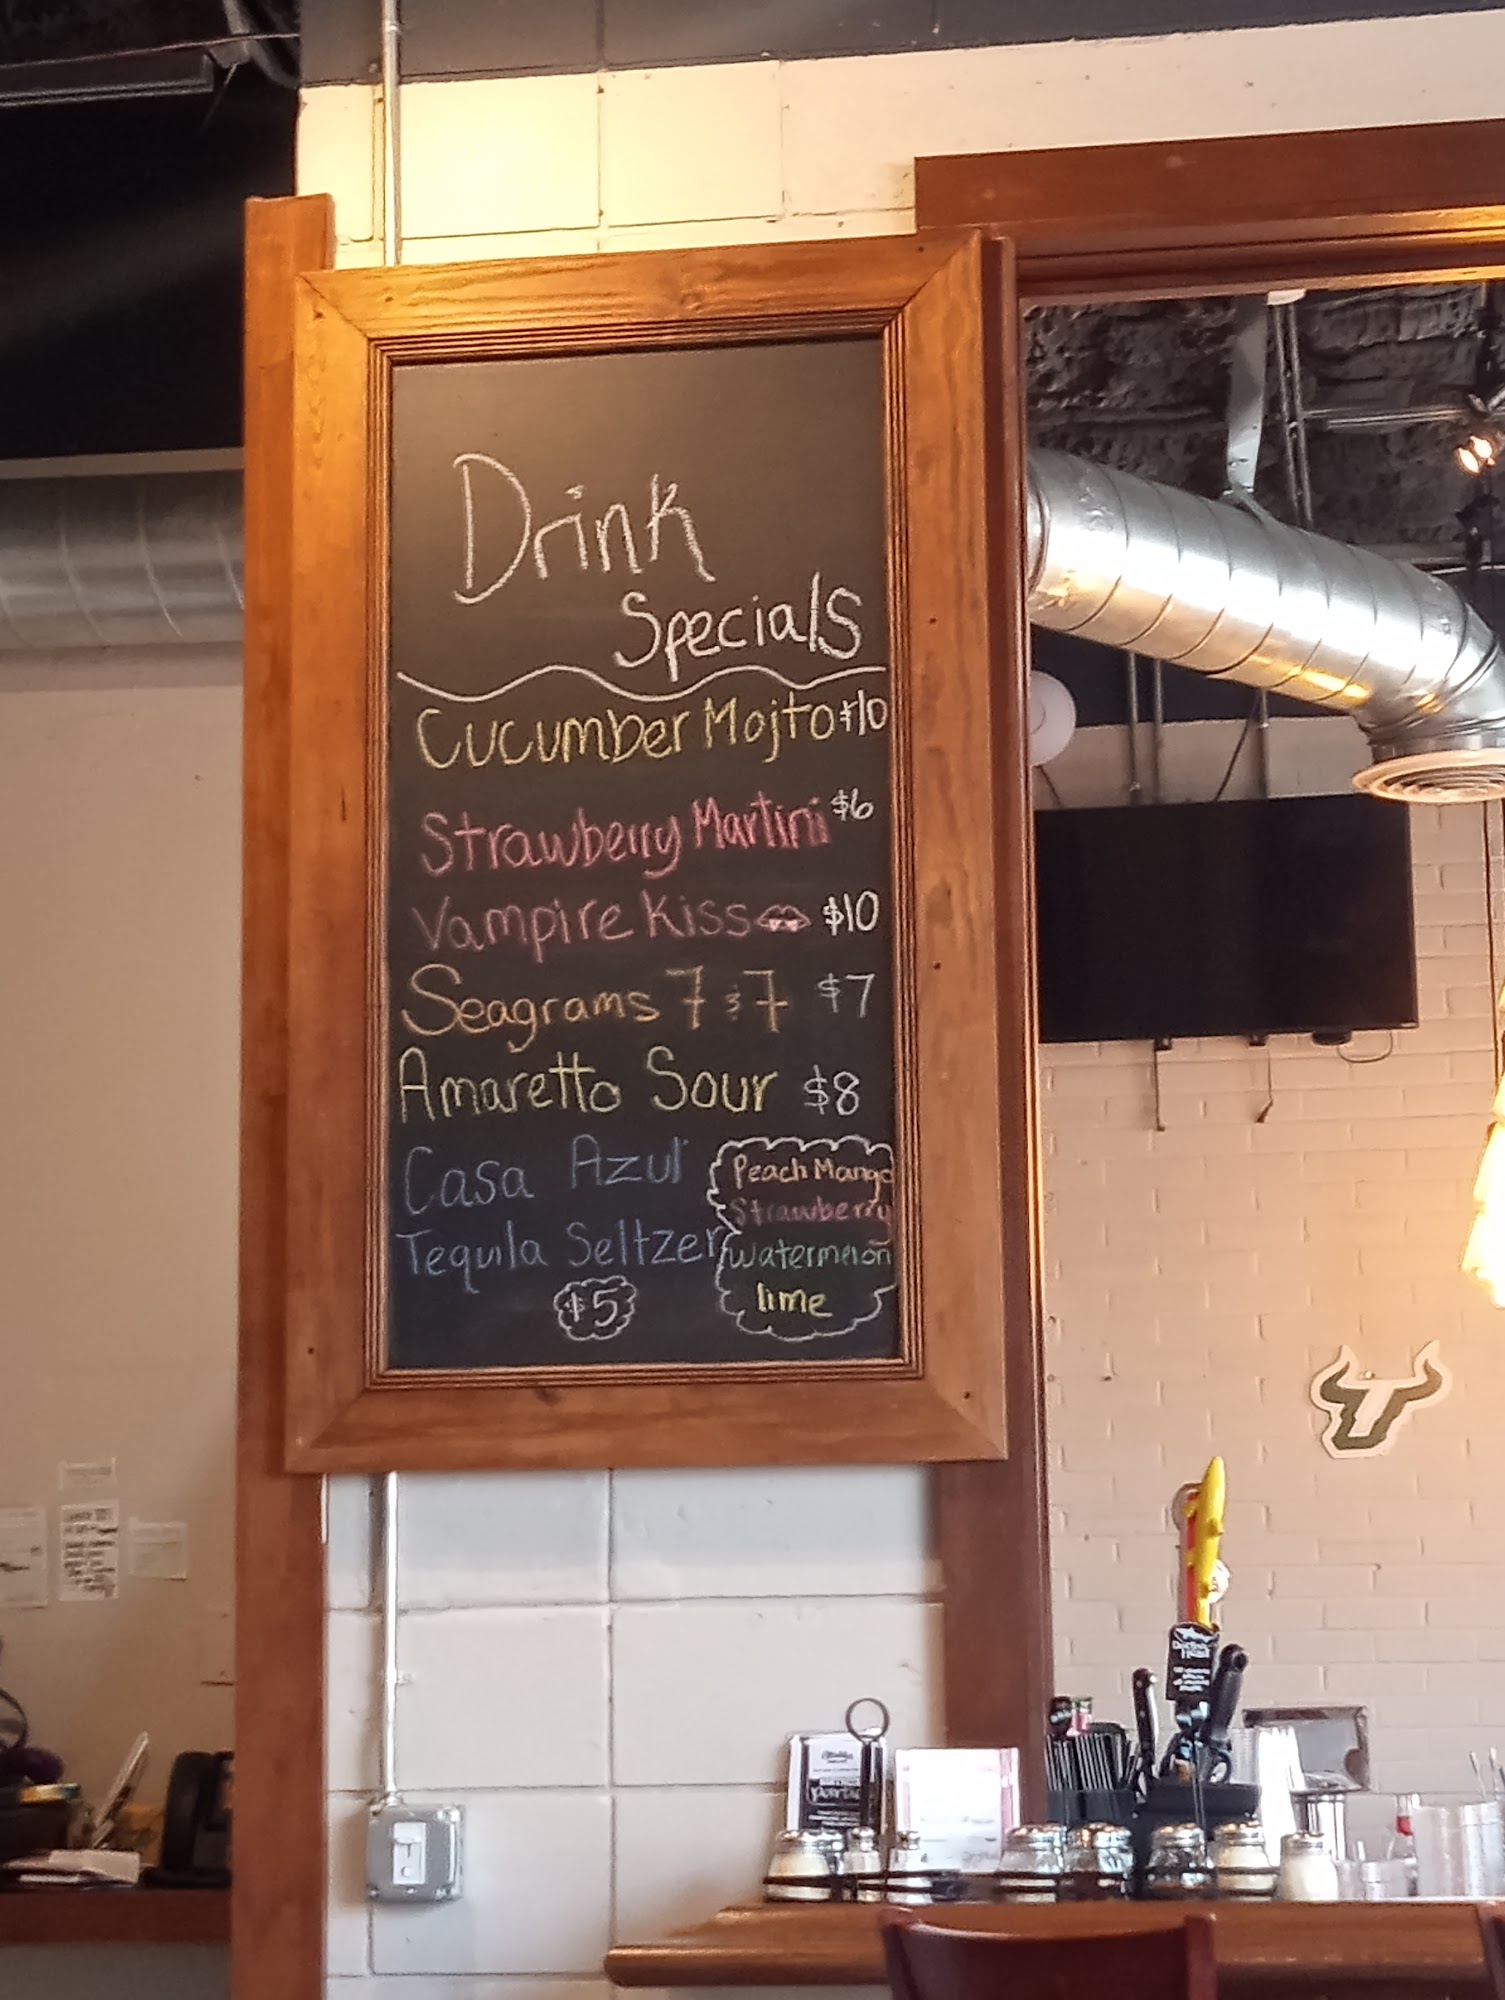 Drink
Specials
Cucumber Mojto $10
Strawberry Martini $6
Vampire Kiss $10
Seagrams 7 & 7 $7
Amaretto Sour $8
Casa Azul
Tequila Seltzer
$5
Peach Mango
Strawberry
Watermelon
lime
Dogfish
Head